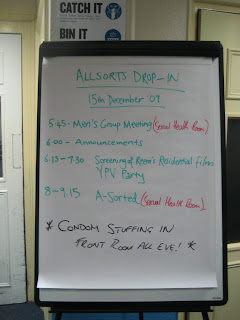 CATCH IT
BIN IT
ALLSORTS DROP-IN
15th December '09
5.45 - Men's Group Meeting (Sexual Health Room)
6.00 - Announcements
6.15 - 7.30 Screening of Reena's Residential Films
YPV Party
8 - 9.15 A-Sorted (Sexual Health Room)
* CONDOM STUFFING IN
FRONT ROOM ALL EVE! *